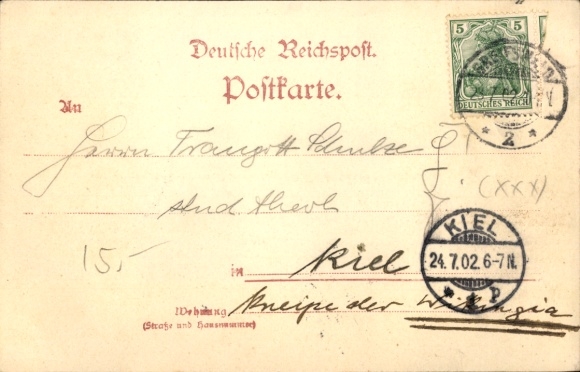 Deutsche Reichspost.
Postkarte.
5 5
DEUTSCHES REICH
2
An
Herrn Traugott Schulze
(XXX)
stud theol
15,-
in Kiel
KIEL
24.7.02. 6-7 N.
Wohnung Kneipe der Wikingia
(Straße und Hausnummer)